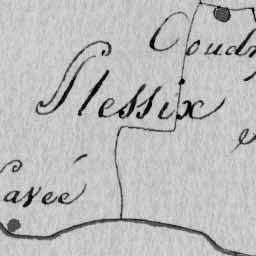 Coudr
Plessix
avée